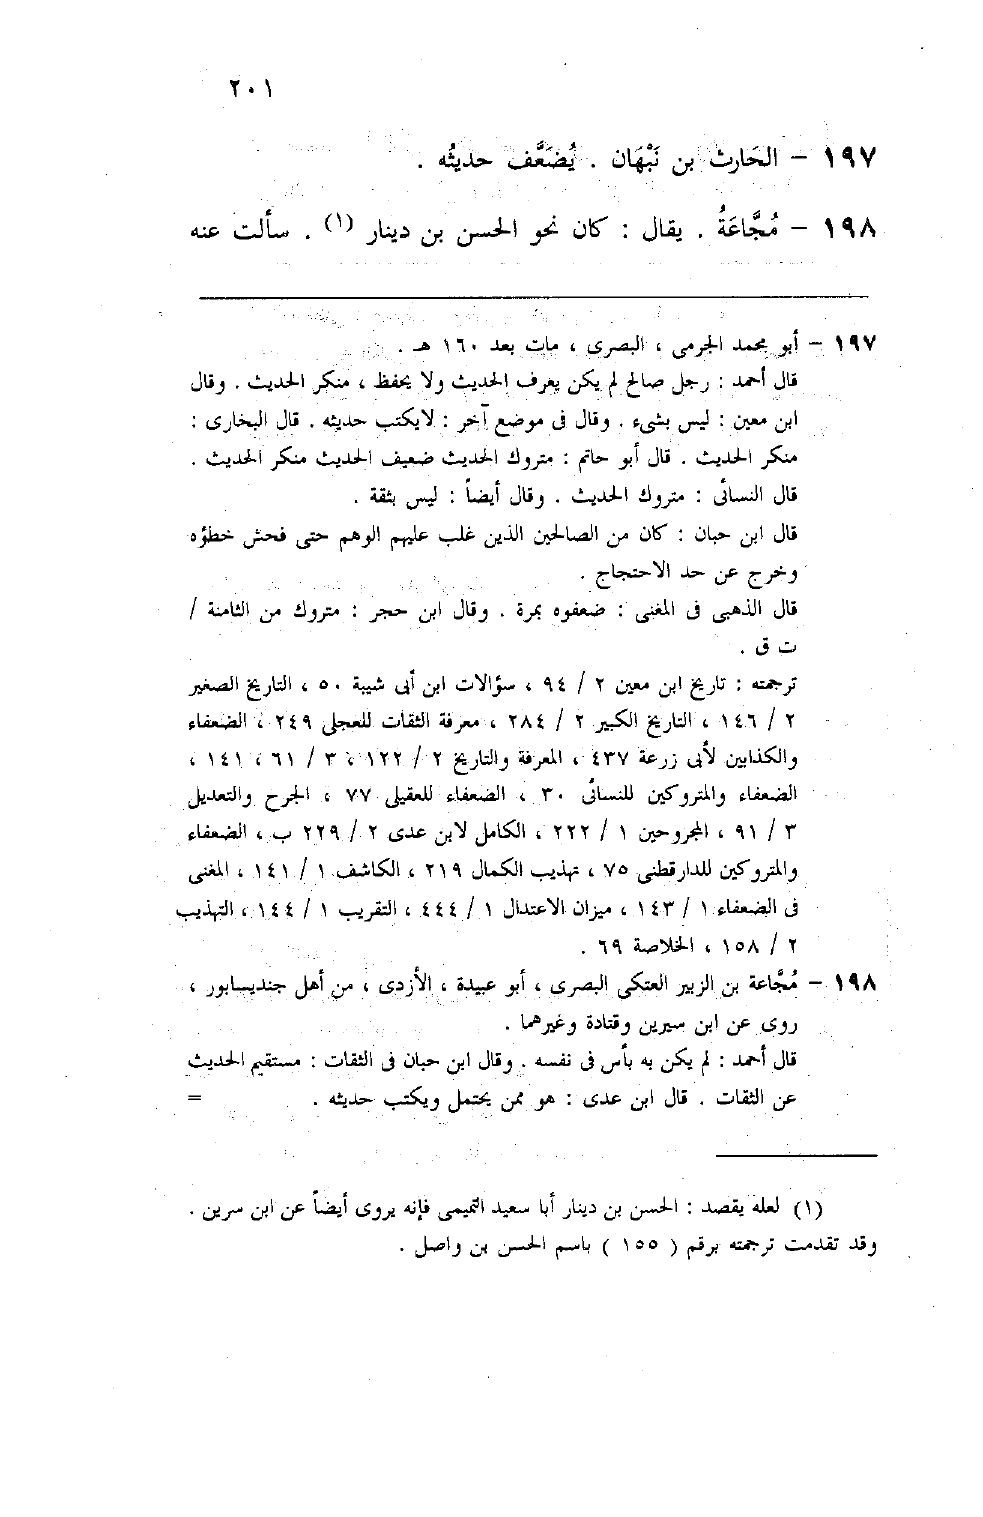 ٢٠١
١٩٧ – الحَارث بن نَبْهَان . يُضَعَّف حديثُه .
١٩٨ – مُجَّاعَةُ . يقال : كان نحو الحسن بن دينار (١) . سألت عنه
١٩٧ – أبو محمد الجرمى ، البصرى ، مات بعد ١٦٠ هـ .
قال أحمد : رجل صالح لم يكن يعرف الحديث ولا يحفظ ، منكر الحديث . وقال
ابن معين : ليس بشىء . وقال فى موضع آخر : لايكتب حديثه . قال البخارى :
منكر الحديث . قال أبو حاتم : متروك الحديث ضعيف الحديث منكر الحديث .
قال النسائى : متروك الحديث . وقال أيضاً : ليس بثقة .
قال ابن حبان : كان من الصالحين الذين غلب عليهم الوهم حتى فحش خطؤه
وخرج عن حد الاحتجاج .
قال الذهبى فى المغنى : ضعفوه بمرة . وقال ابن حجر : متروك من الثامنة /
ت ق .
ترجمته : تاريخ ابن معين ٢ / ٩٤ ، سؤالات ابن أبى شيبة ٥٠ ، التاريخ الصغير
٢ / ١٤٦ ، التاريخ الكبير ٢ / ٢٨٤ ، معرفة الثقات للعجلى ٢٤٩ ، الضعفاء
والكذابين لأبى زرعة ٤٣٧ ، المعرفة والتاريخ ٢ / ١٢٢ ، ٣ / ٦١ ، ١٤١ ،
الضعفاء والمتروكين للنسائى ٣٠ ، الضعفاء للعقيلى ٧٧ ، الجرح والتعديل
٣ / ٩١ ، المجروحين ١ / ٢٢٢ ، الكامل لابن عدى ٢ / ٢٢٩ ب ، الضعفاء
والمتروكين للدارقطنى ٧٥ ، تهذيب الكمال ٢١٩ ، الكاشف ١ / ١٤١ ، المغنى
فى الضعفاء ١ / ١٤٣ ، ميزان الاعتدال ١ / ٤٤٤ ، التقريب ١ / ١٤٤ ، التهذيب
٢ / ١٥٨ ، الخلاصة ٦٩ .
١٩٨ – مُجَّاعة بن الزبير العتكى البصرى ، أبو عبيدة ، الأزدى ، من أهل جنديسابور ،
روى عن ابن سيرين وقتادة وغيرهما .
قال أحمد : لم يكن به بأس فى نفسه . وقال ابن حبان فى الثقات : مستقيم الحديث
عن الثقات . قال ابن عدى : هو ممن يحتمل ويكتب حديثه . =
(١) لعله يقصد : الحسن بن دينار أبا سعيد التميمى فإنه يروى أيضاً عن ابن سرين .
وقد تقدمت ترجمته برقم ( ١٥٥ ) باسم الحسن بن واصل .